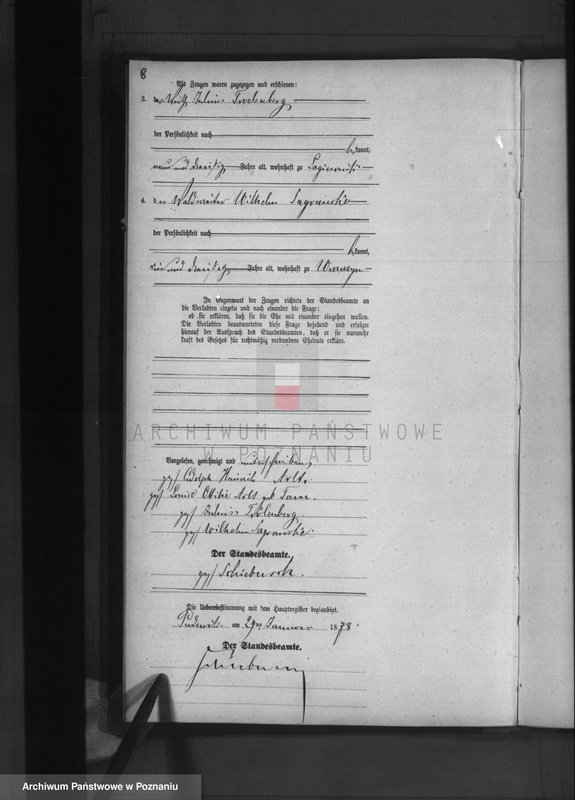 8
Als Zeugen waren zugezogen und erschienen:
3. der Wirth Julius
der Persönlichkeit nach
kannt,
neun und dreißig Jahre alt, wohnhaft zu
4. der Waldwärter Wilhelm Sagrauske
der Persönlichkeit nach
kannt,
und dreißig Jahre alt, wohnhaft zu
In Gegenwart der Zeugen richtete der Standesbeamte an
die Verlobten einzeln und nach einander die Frage:
ob sie erklären, daß sie die Ehe mit einander eingehen wollen.
Die Verlobten beantworteten diese Frage bejahend und erfolgte
hierauf der Ausspruch des Standesbeamten, daß er sie nunmehr
kraft des Gesetzes für rechtmäßig verbundene Eheleute erkläre.
ARCHIWUM PAŃSTWOWE
W POZNANIU
Vorgelesen, genehmigt und unterschrieben
gez. Heinrich Arlt.
gez. Louise Ottilie Arlt geb.
gez. Julius
gez. Wilhelm Sagrauske
Der Standesbeamte.
gez.
Die Uebereinstimmung mit dem Hauptregister beglaubigt.
Pudewitz am 29ten Januar 1878.
Der Standesbeamte.
Archiwum Państwowe w Poznaniu